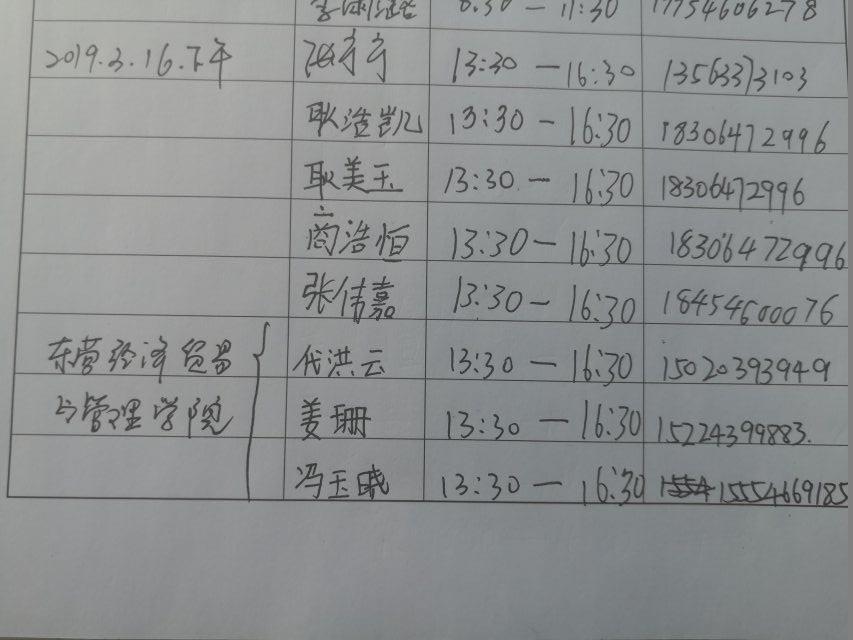 8:30 — 11:30 17754606278
2019.3.16.下午 13:30 — 16:30 13563373103
耿浩凯 13:30 — 16:30 18306472996
耿美玉 13:30 — 16:30 18306472996
商浩恒 13:30 — 16:30 18306472996
张伟嘉 13:30 — 16:30 18454600076
东营经济贸易 代洪云 13:30 — 16:30 15020393949
与管理学院 姜珊 13:30 — 16:30 15224399883.
冯玉晓 13:30 — 16:30 15554669185